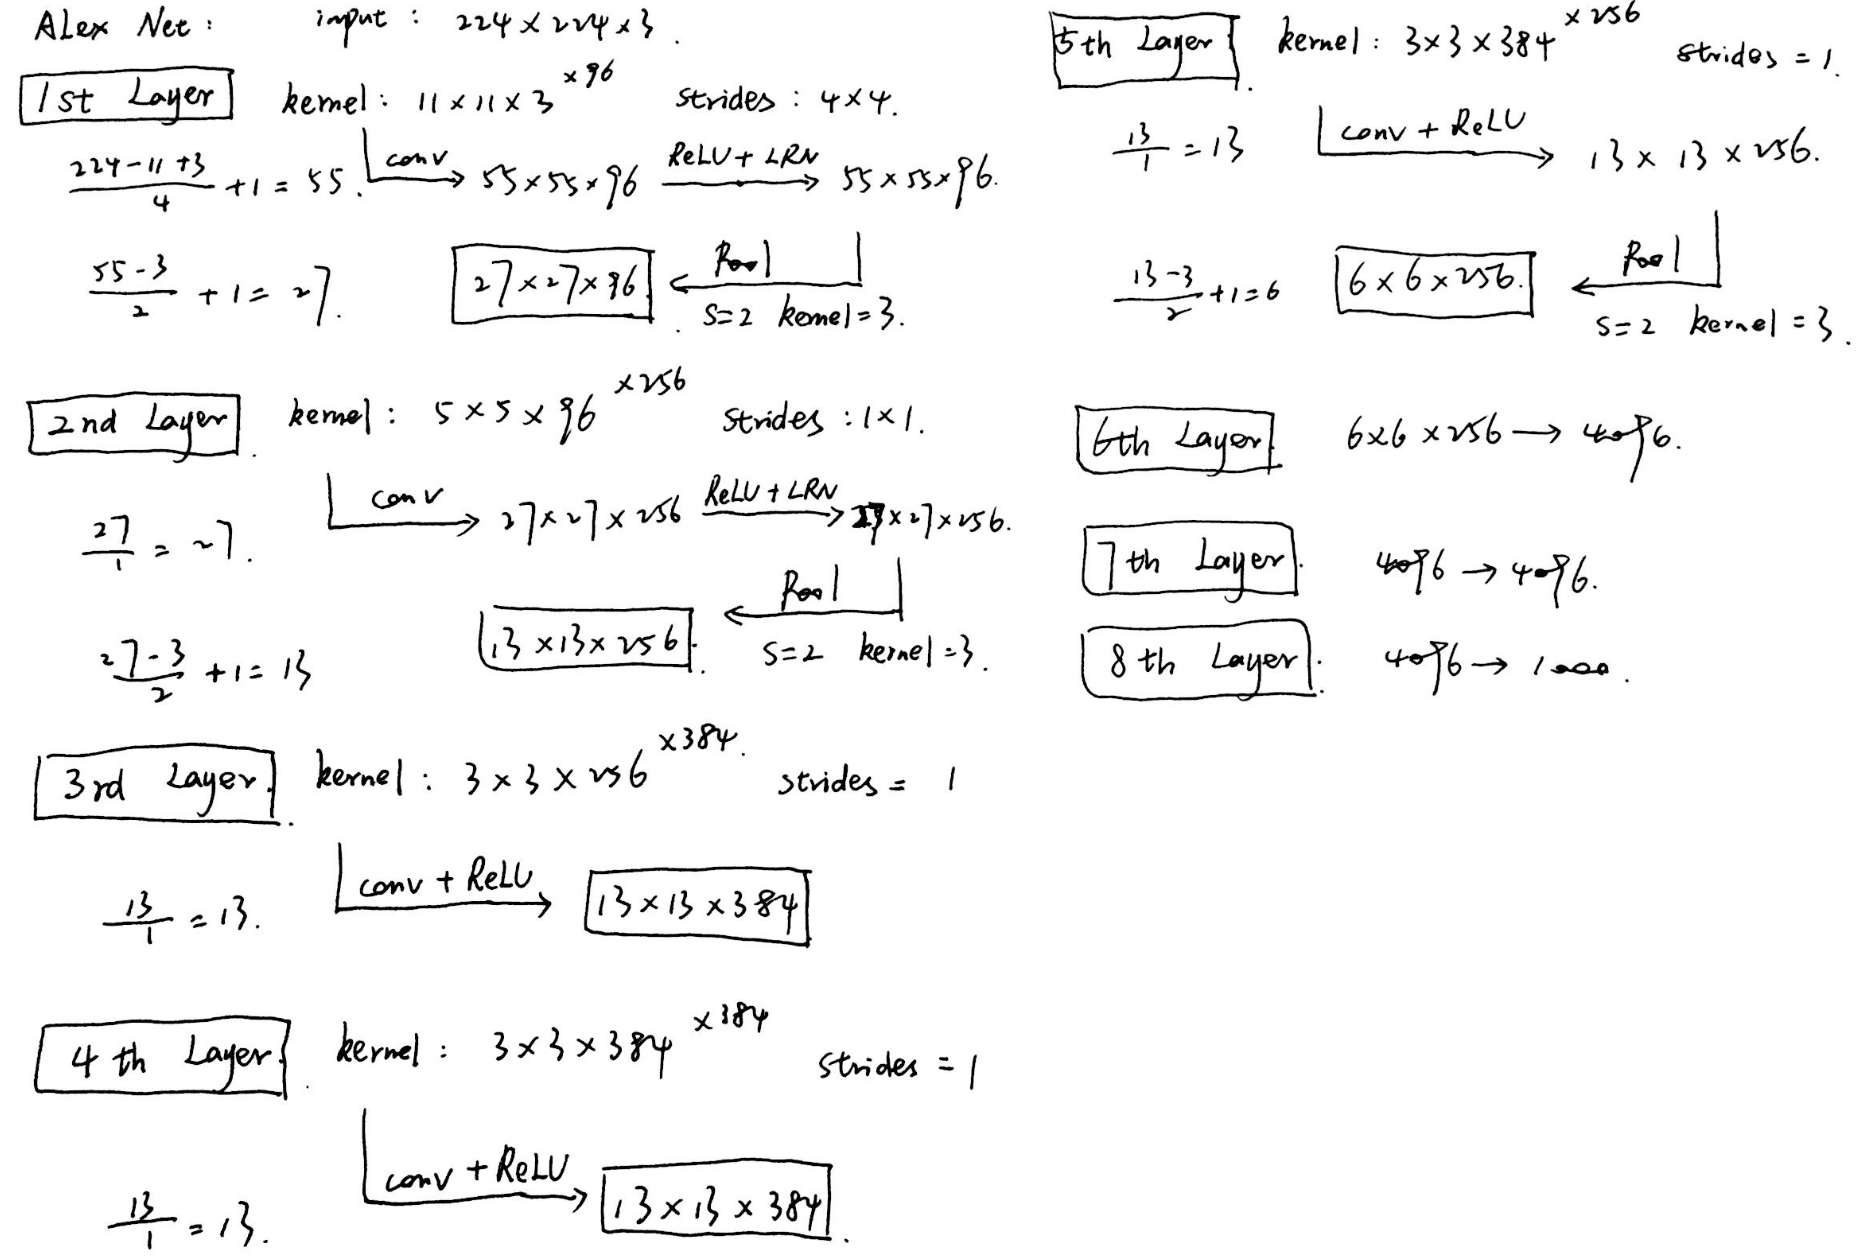 ALex Net: input: 224 × 224 × 3.
1st Layer kernel: 11 × 11 × 3 ×96 strides: 4×4.
(224-11+3)/4 +1 = 55. conv → 55×55×96 ReLU + LRN → 55×55×96.
(55-3)/2 + 1 = 27. 27×27×96 ← Pool S=2 kernel=3.
2nd Layer. kernel: 5×5×96 ×256 strides: 1×1.
27/1 = 27. conv → 27×27×256 ReLU + LRN → 27×27×256.
(27-3)/2 + 1 = 13 13×13×256. ← Pool S=2 kernel=3.
3rd Layer. kernel: 3×3×256 ×384. strides = 1
13/1 = 13. conv + ReLU → 13×13×384
4th Layer. kernel: 3×3×384 ×384 strides = 1
13/1 = 13. conv + ReLU → 13×13×384.
5th Layer. kernel: 3×3×384 ×256 strides = 1.
13/1 = 13 conv + ReLU → 13×13×256.
(13-3)/2 +1=6 6×6×256. ← Pool S=2 kernel=3.
6th Layer. 6×6×256 → 4096.
7th Layer. 4096 → 4096.
8th Layer. 4096 → 1000.